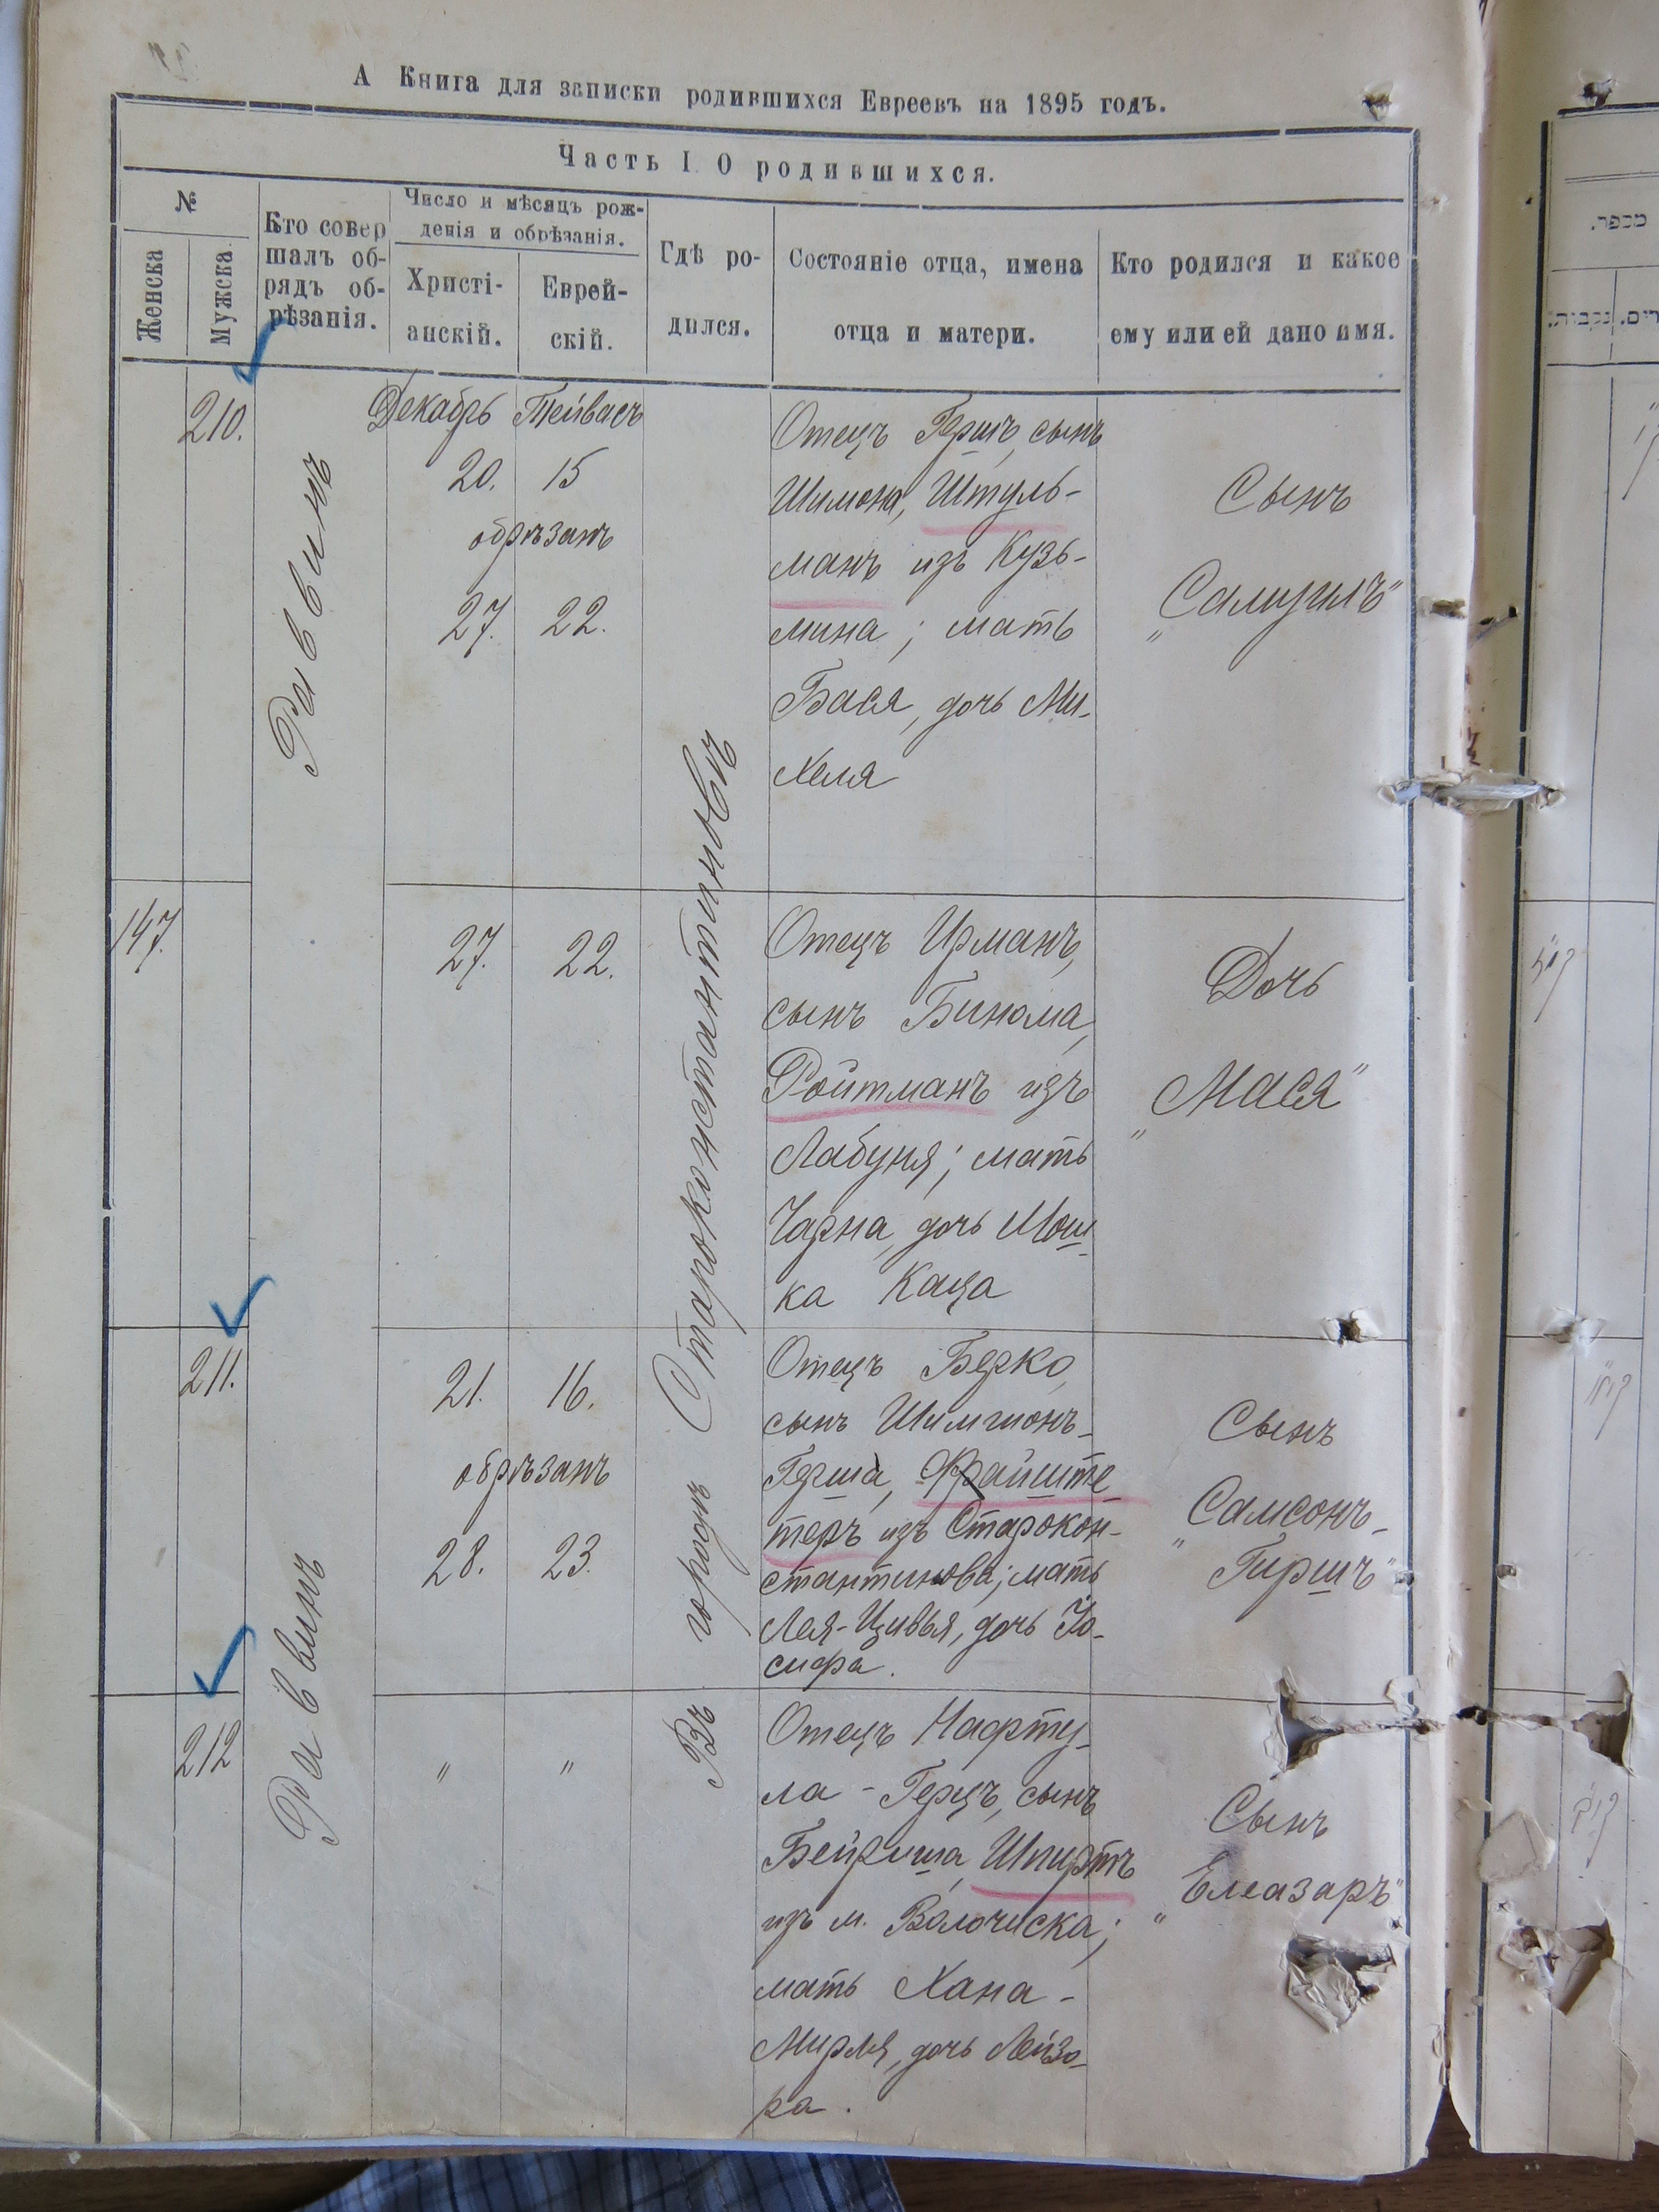 А Книга для записки родившихся Евреевъ на 1895 годъ.
Часть I О родившихся.
№
Женска
Мужска
Кто совер
шалъ об-
рядъ об-
рѣзанія.
Число и мѣсяцъ рож-
денія и обрѣзанія.
Христі-
анскій.
Еврей-
скій.
Гдѣ ро-
дился.
Состояніе отца, имена
отца и матери.
Кто родился и какое
ему или ей дано имя.
210.
Раввинъ
Декабрь Тейвасъ
20. 15
обрѣзанъ
27. 22.
Въ городѣ Староконстантиновѣ
Отецъ Гершъ, сынъ
Шимона, Штуль-
манъ изъ Кузь-
мина; мать
Бася, дочь Ми-
хеля
Сынъ
„Самуилъ"
147.
27. 22.
Отецъ Ирманъ,
сынъ Бинома,
Ройтманъ изъ
Лабуня; мать
Чарна, дочь Мош-
ка Каца
Дочь
„Мася"
211.
Раввинъ
21. 16.
обрѣзанъ
28. 23.
Отецъ Берко,
сынъ Шимшонъ-
Герша,
теръ изъ Старокон-
стантинова; мать
Лея-Цивья, дочь Іо-
сифа.
Сынъ
„Самсонъ-
Гиршъ"
212
" "
Отецъ Нафту-
ла-Герцъ, сынъ
Бейриша, Шпиртъ
изъ м. Волочиска;
мать Хана-
Мирля, дочь Лейзо-
ра.
Сынъ
„Елеазаръ"
מספר.
נקבות.